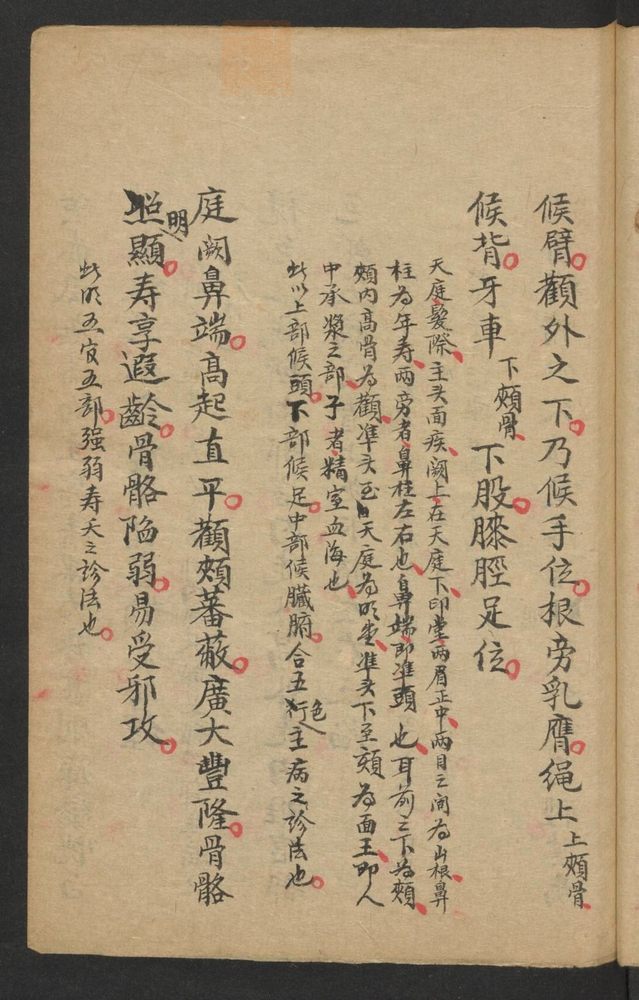 候臂。顴外之下。乃候手位。根旁乳膺。绳上上頰骨
候背。牙車下頰骨下股。膝脛足位。
天庭髮際、主头面疾、阙上在天庭下、印堂两眉正中、两目之间为山根、鼻
柱为年寿、两旁者鼻柱左右也、鼻端即准頭也、耳前之下为頰、
頰内高骨为顴、準头至天庭为明堂、準头下至頦为面王、即人
中承漿之部、子者、精室血海也、
此以上部候頭。下部候足。中部候臓腑。合五色主病之診法也。
庭阙鼻端。高起直平。顴頰蕃蔽。廣大豐隆。骨骼
明顯。寿享遐齡。骨骼陷弱。易受邪攻。
此明五官五部。强弱寿夭之診法也。